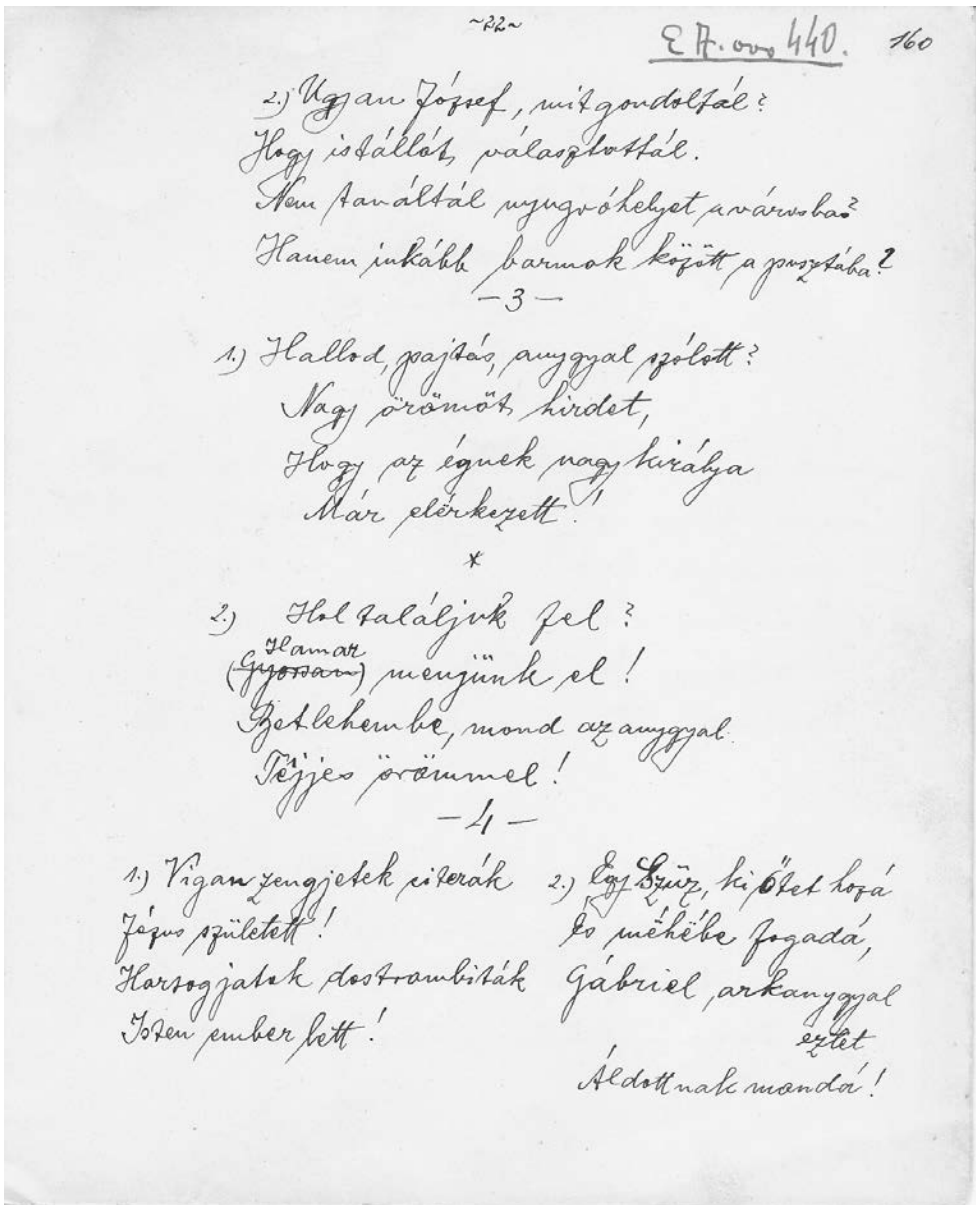 ~22~
E A. 000 440. 160
2.) Ugyan József, mit gondoltál?
Hogy istállót választottál.
Nem tanáltál nyugvóhelyet a városba?
Hanem inkább barmok között a pusztába?
-3-
1.) Hallod, pajtás, anygyal szólott?
Nagy örömöt hirdet,
Hogy az égnek nagy királya
Már elérkezett!
*
2.) Hol találjuk fel?
Hamar
(Gyorsan) menjünk el!
Betlehembe, mond az anygyal
Tejjes örömmel!
-4-
1.) Vígan zengjetek citerák
Jézus született!
Harsogjatok dostrombiták
Isten ember lett!
2.) Egy Szűz, ki Őtet hozá
És méhébe fogadá,
Gábriel arkanygyal
eztet
Áldottnak mondá!